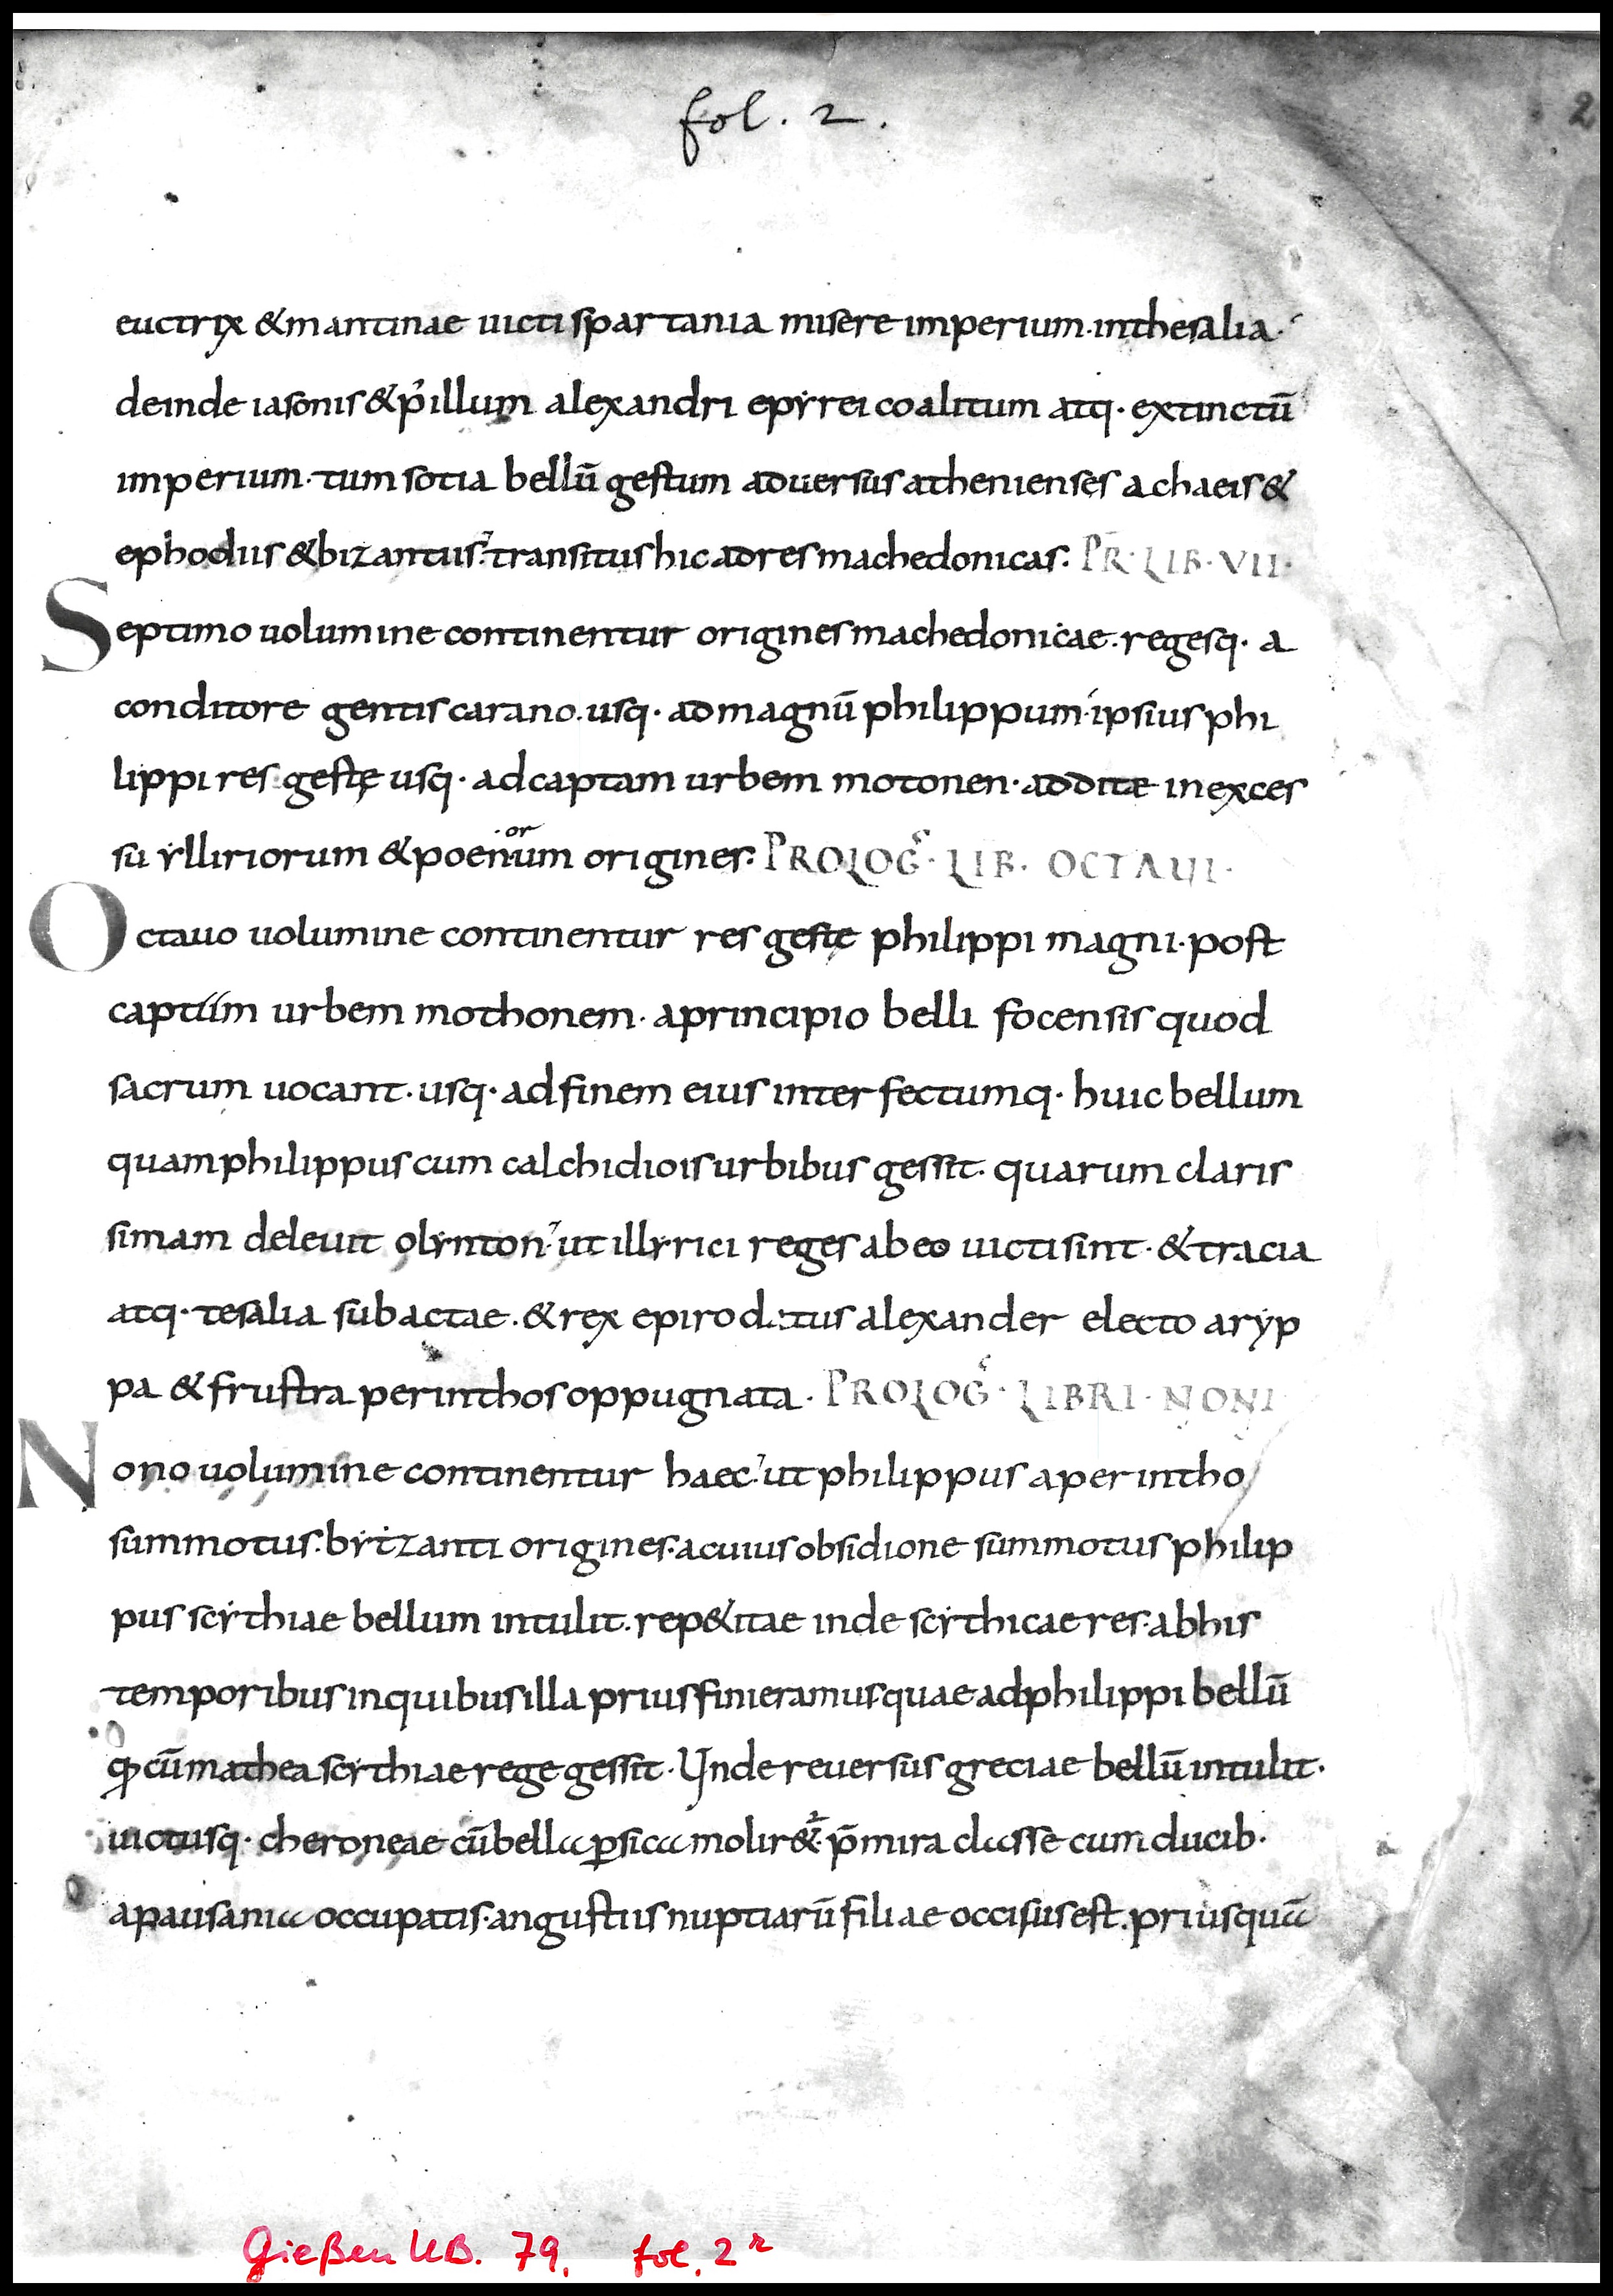 fol. 2.
2
euctrix &mantinae uicti spartania misere imperium·inthesalia·
deinde iasonis &p᾽illum alexandri epẏrei coalitum atq· extinctū
imperium·tum sotia bellū gestum aduersus athenienses achaeis &
ephodus &bizantus·transitus hic adres machedonicas· PR̄·LIB·VII·
Septimo uolumine continentur origines machedonicae·regesq· a
conditore gentis carano·usq· ad magnū philippum·ipsius phi
lippi res gestę usq· ad captam urbem motonen·additae in exces
su ẏlliriorum &poenorum origines· PROLOGS· LIB· OCTAUI·
Octauo uolumine continentur res gestę philippi magni·post
captam urbem mothonem· aprincipio belli focensis quod
sacrum uocant·usq· ad finem eius interfectumq· huic bellum
quam philippus cum calchidiois urbibus gessit· quarum claris
simam deleuit olẏnton·ut illẏrici reges ab eo uicti sint·&tracia
atq·tesalia subactae·&rex epiro d.:tus alexander electo arẏp
pa &frustra perinthos oppugnata· PROLOGS· LIBRI·NONI
Nono uolumine continentur haec·ut philippus aperintho
summotus·bẏtzanti origines·acuius obsidione summotus philip
pus scẏthiae bellum intulit·rep&itae inde scẏthicae res·abhis
temporibus inquibus illa prius finieramus quae adphilippi bellū
ꝙ cū mathea scẏthiae rege gessit· Unde reuersus greciae bellū intulit·
uictusq· cheroneae cū bella ꝑsica molir&· p̄mira classe cum ducib·
apausania occupatis·angustiis nuptiarū filiae occisus est·priusquā
Gießen UB. 79, fol. 2r